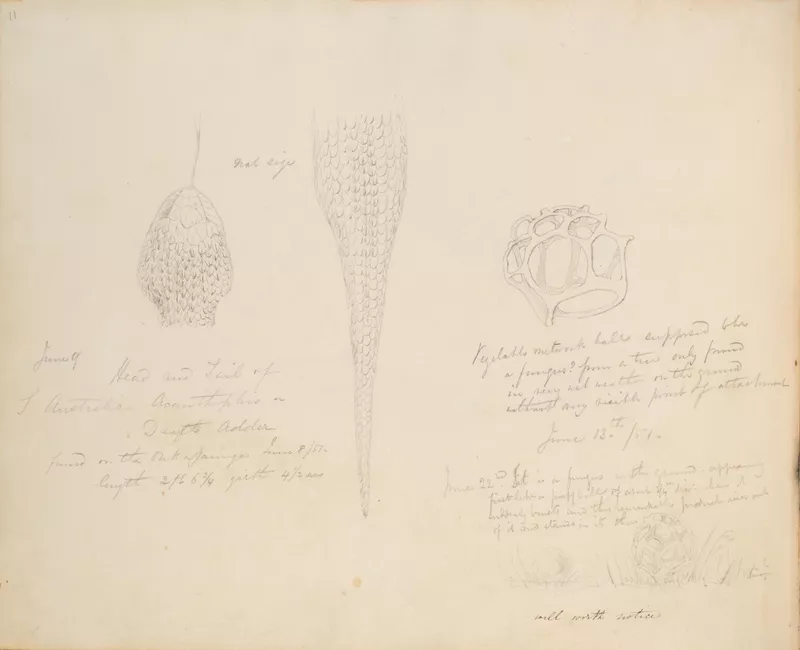 11
nat size
June 9
Head and Tail of
S Australian Acanthophis or
Death Adder
found on the Onkaparinga June 8/51.
length 2ft 6¾ girth 4½ ins
Vegetable network balls supposed to be
a fungus? from a tree only found
in very wet weather on the ground
without any visible point of attachment
June 13th /51.
June 22nd. It is a fungus in the ground appearing
first like a puff ball of about dia: when it
suddenly bursts and this remarkable production rises out
of it and stands in it thus
well worth notice